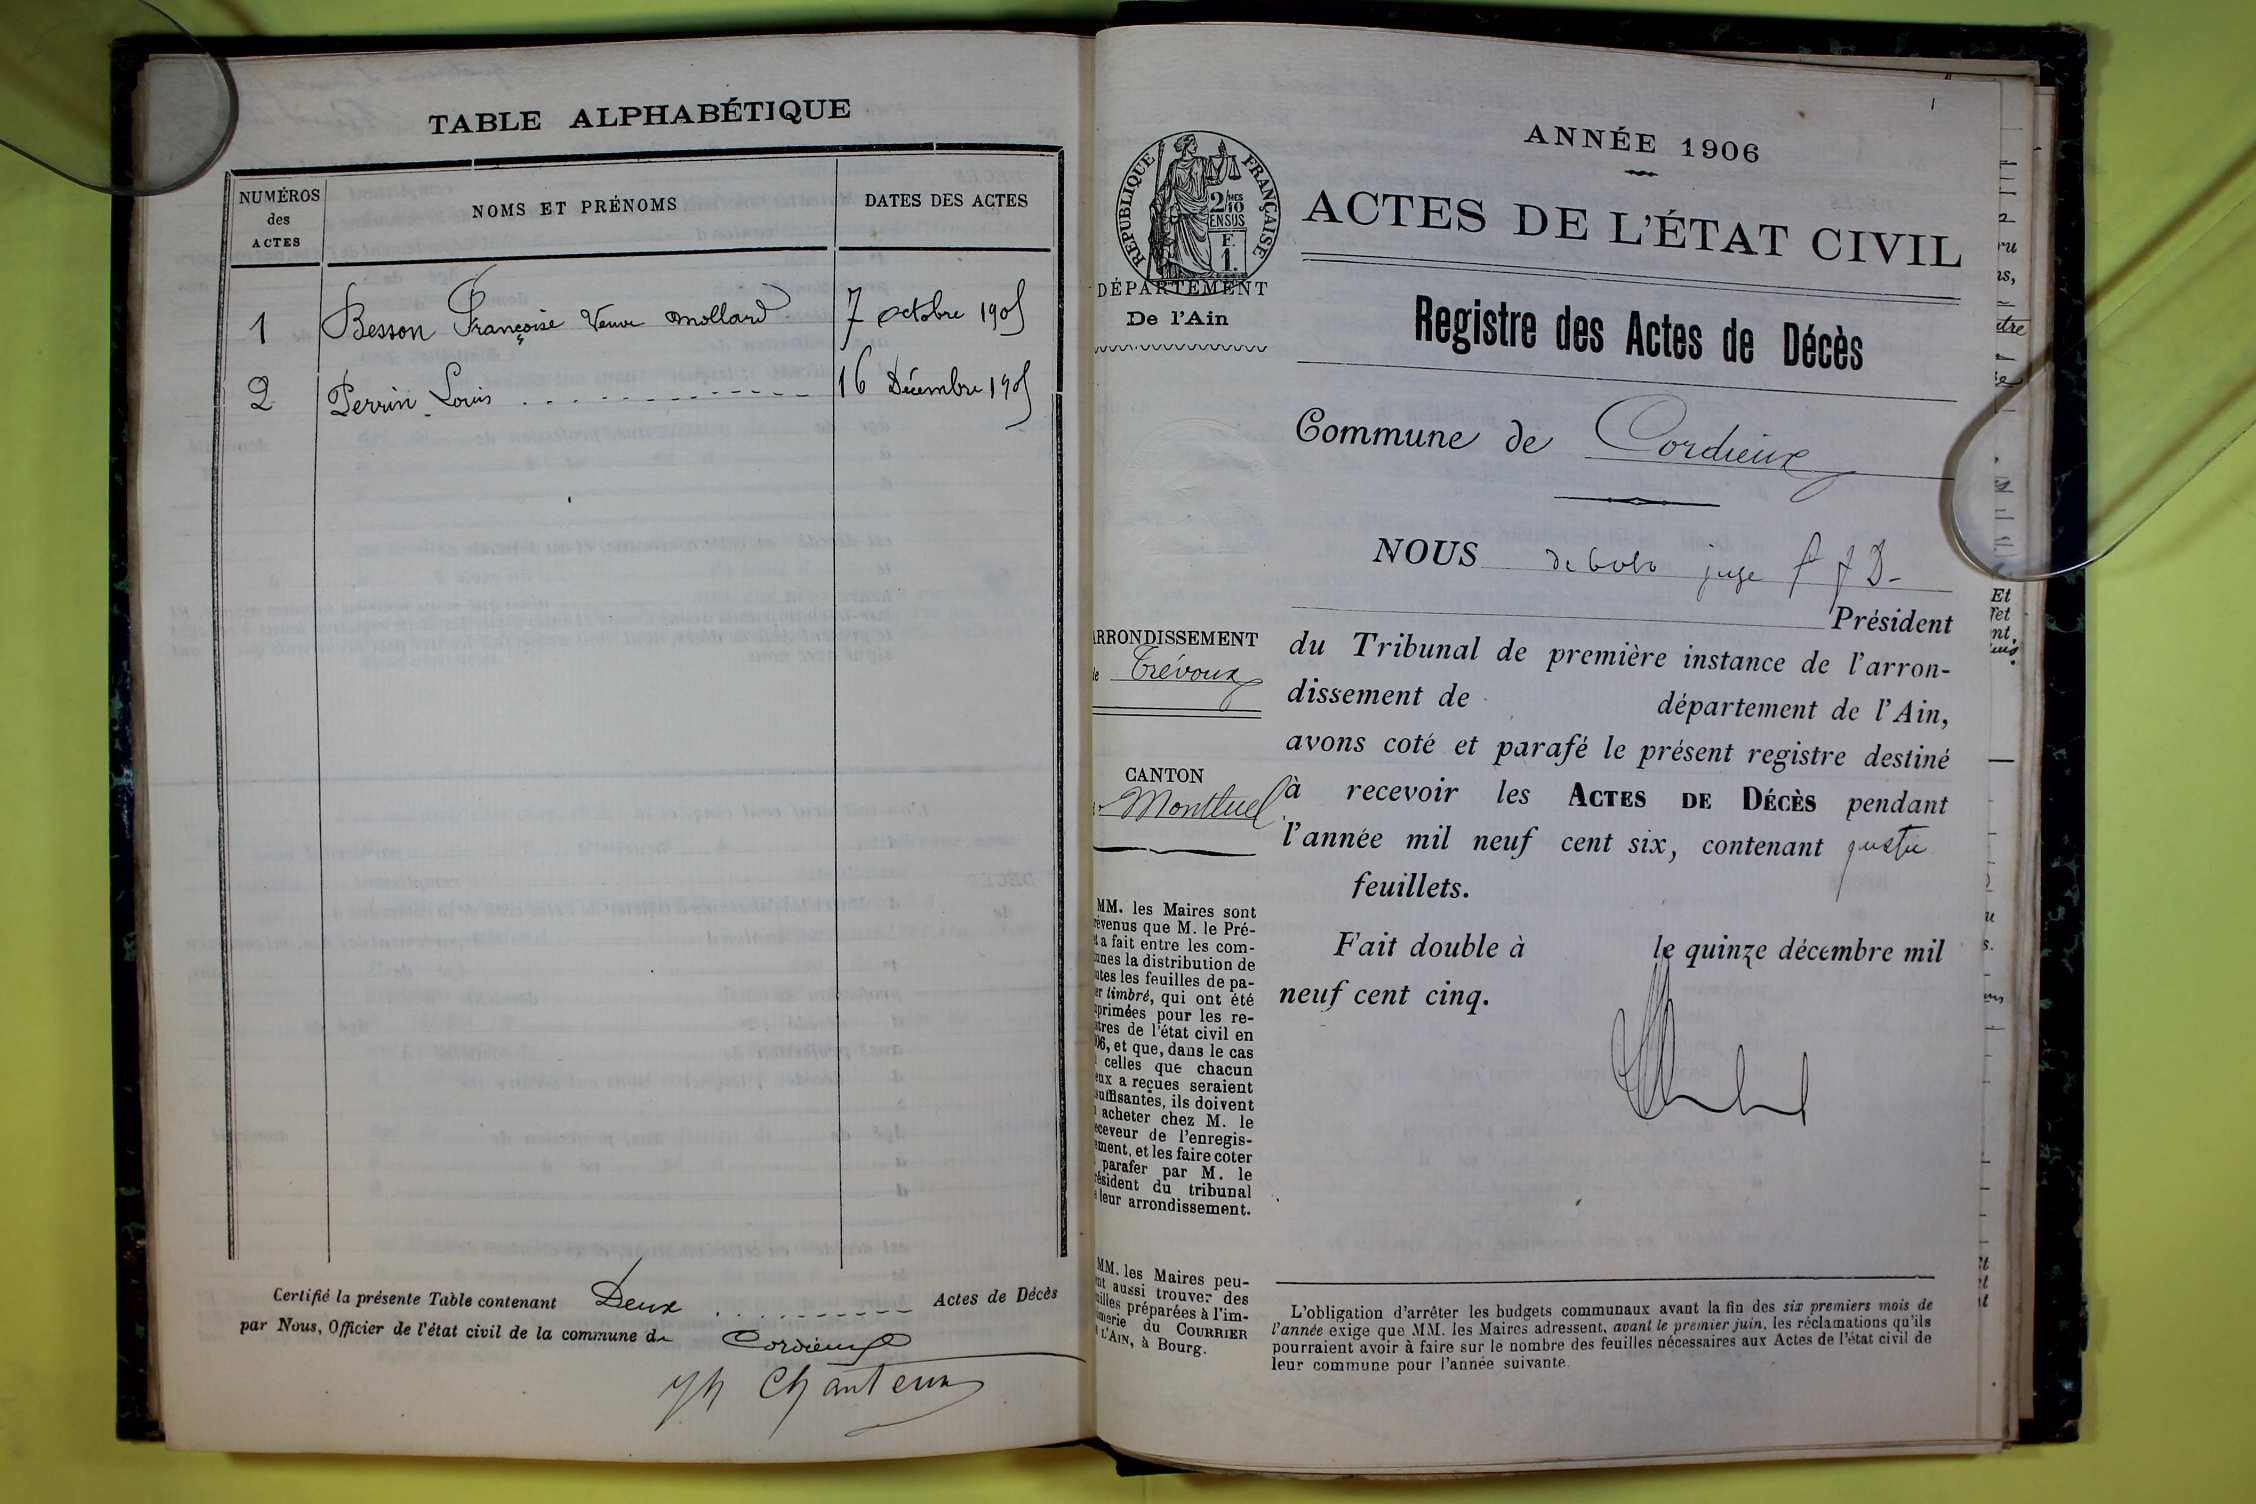 TABLE ALPHABÉTIQUE
NUMÉROS
des
ACTES
NOMS ET PRÉNOMS
DATES DES ACTES
1 Besson Françoise Veuve Mollard 7 octobre 1905
2 Perrin Louis 16 Décembre 1905
Certifié la présente Table contenant Deux Actes de Décès
par Nous, Officier de l'état civil de la commune de Cordieux
Chanteur
1
RÉPUBLIQUE FRANÇAISE
2/10
EN SUS
F.
1.
DÉPARTEMENT
De l'Ain
ARRONDISSEMENT
de Trévoux
CANTON
Montluel
MM. les Maires sont
révenus que M. le Pré-
a fait entre les com-
unes la distribution de
utes les feuilles de pa-
er timbré, qui ont été
primées pour les re-
stres de l'état civil en
06, et que, dans le cas
celles que chacun
eux a reçues seraient
suffisantes, ils doivent
acheter chez M. le
eceveur de l'enregis-
ement, et les faire coter
parafer par M. le
résident du tribunal
leur arrondissement.
MM. les Maires peu-
nt aussi trouver des
uilles préparées à l'im-
merie du COURRIER
L'AIN, à Bourg.
ANNÉE 1906
ACTES DE L'ÉTAT CIVIL
Registre des Actes de Décès
Commune de Cordieux
NOUS juge
Président
du Tribunal de première instance de l'arron-
dissement de département de l'Ain,
avons coté et parafé le présent registre destiné
à recevoir les ACTES DE DÉCÈS pendant
l'année mil neuf cent six, contenant quatre
feuillets.
Fait double à le quinze décembre mil
neuf cent cinq.
L'obligation d'arrêter les budgets communaux avant la fin des six premiers mois de
l'année exige que MM. les Maires adressent, avant le premier juin, les réclamations qu'ils
pourraient avoir à faire sur le nombre des feuilles nécessaires aux Actes de l'état civil de
leur commune pour l'année suivante.